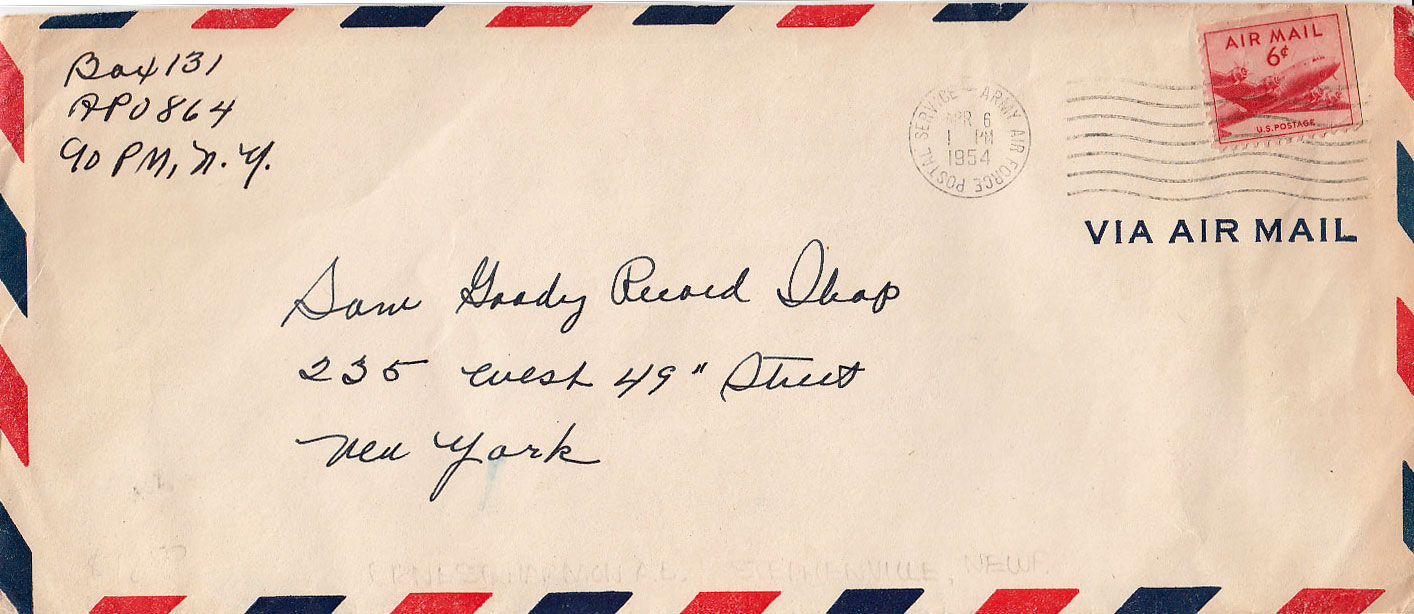 Box 131
APO 864
℅ PM, N.Y.
POSTAL SERVICE ARMY AIR FORCE
APR 6
1 PM
1954
AIR MAIL
6¢
U.S. POSTAGE
VIA AIR MAIL
Sam Goody Record Shop
235 West 49" Street
New York
ERNEST HARMON A.F. STEPHENVILLE, NEWF.